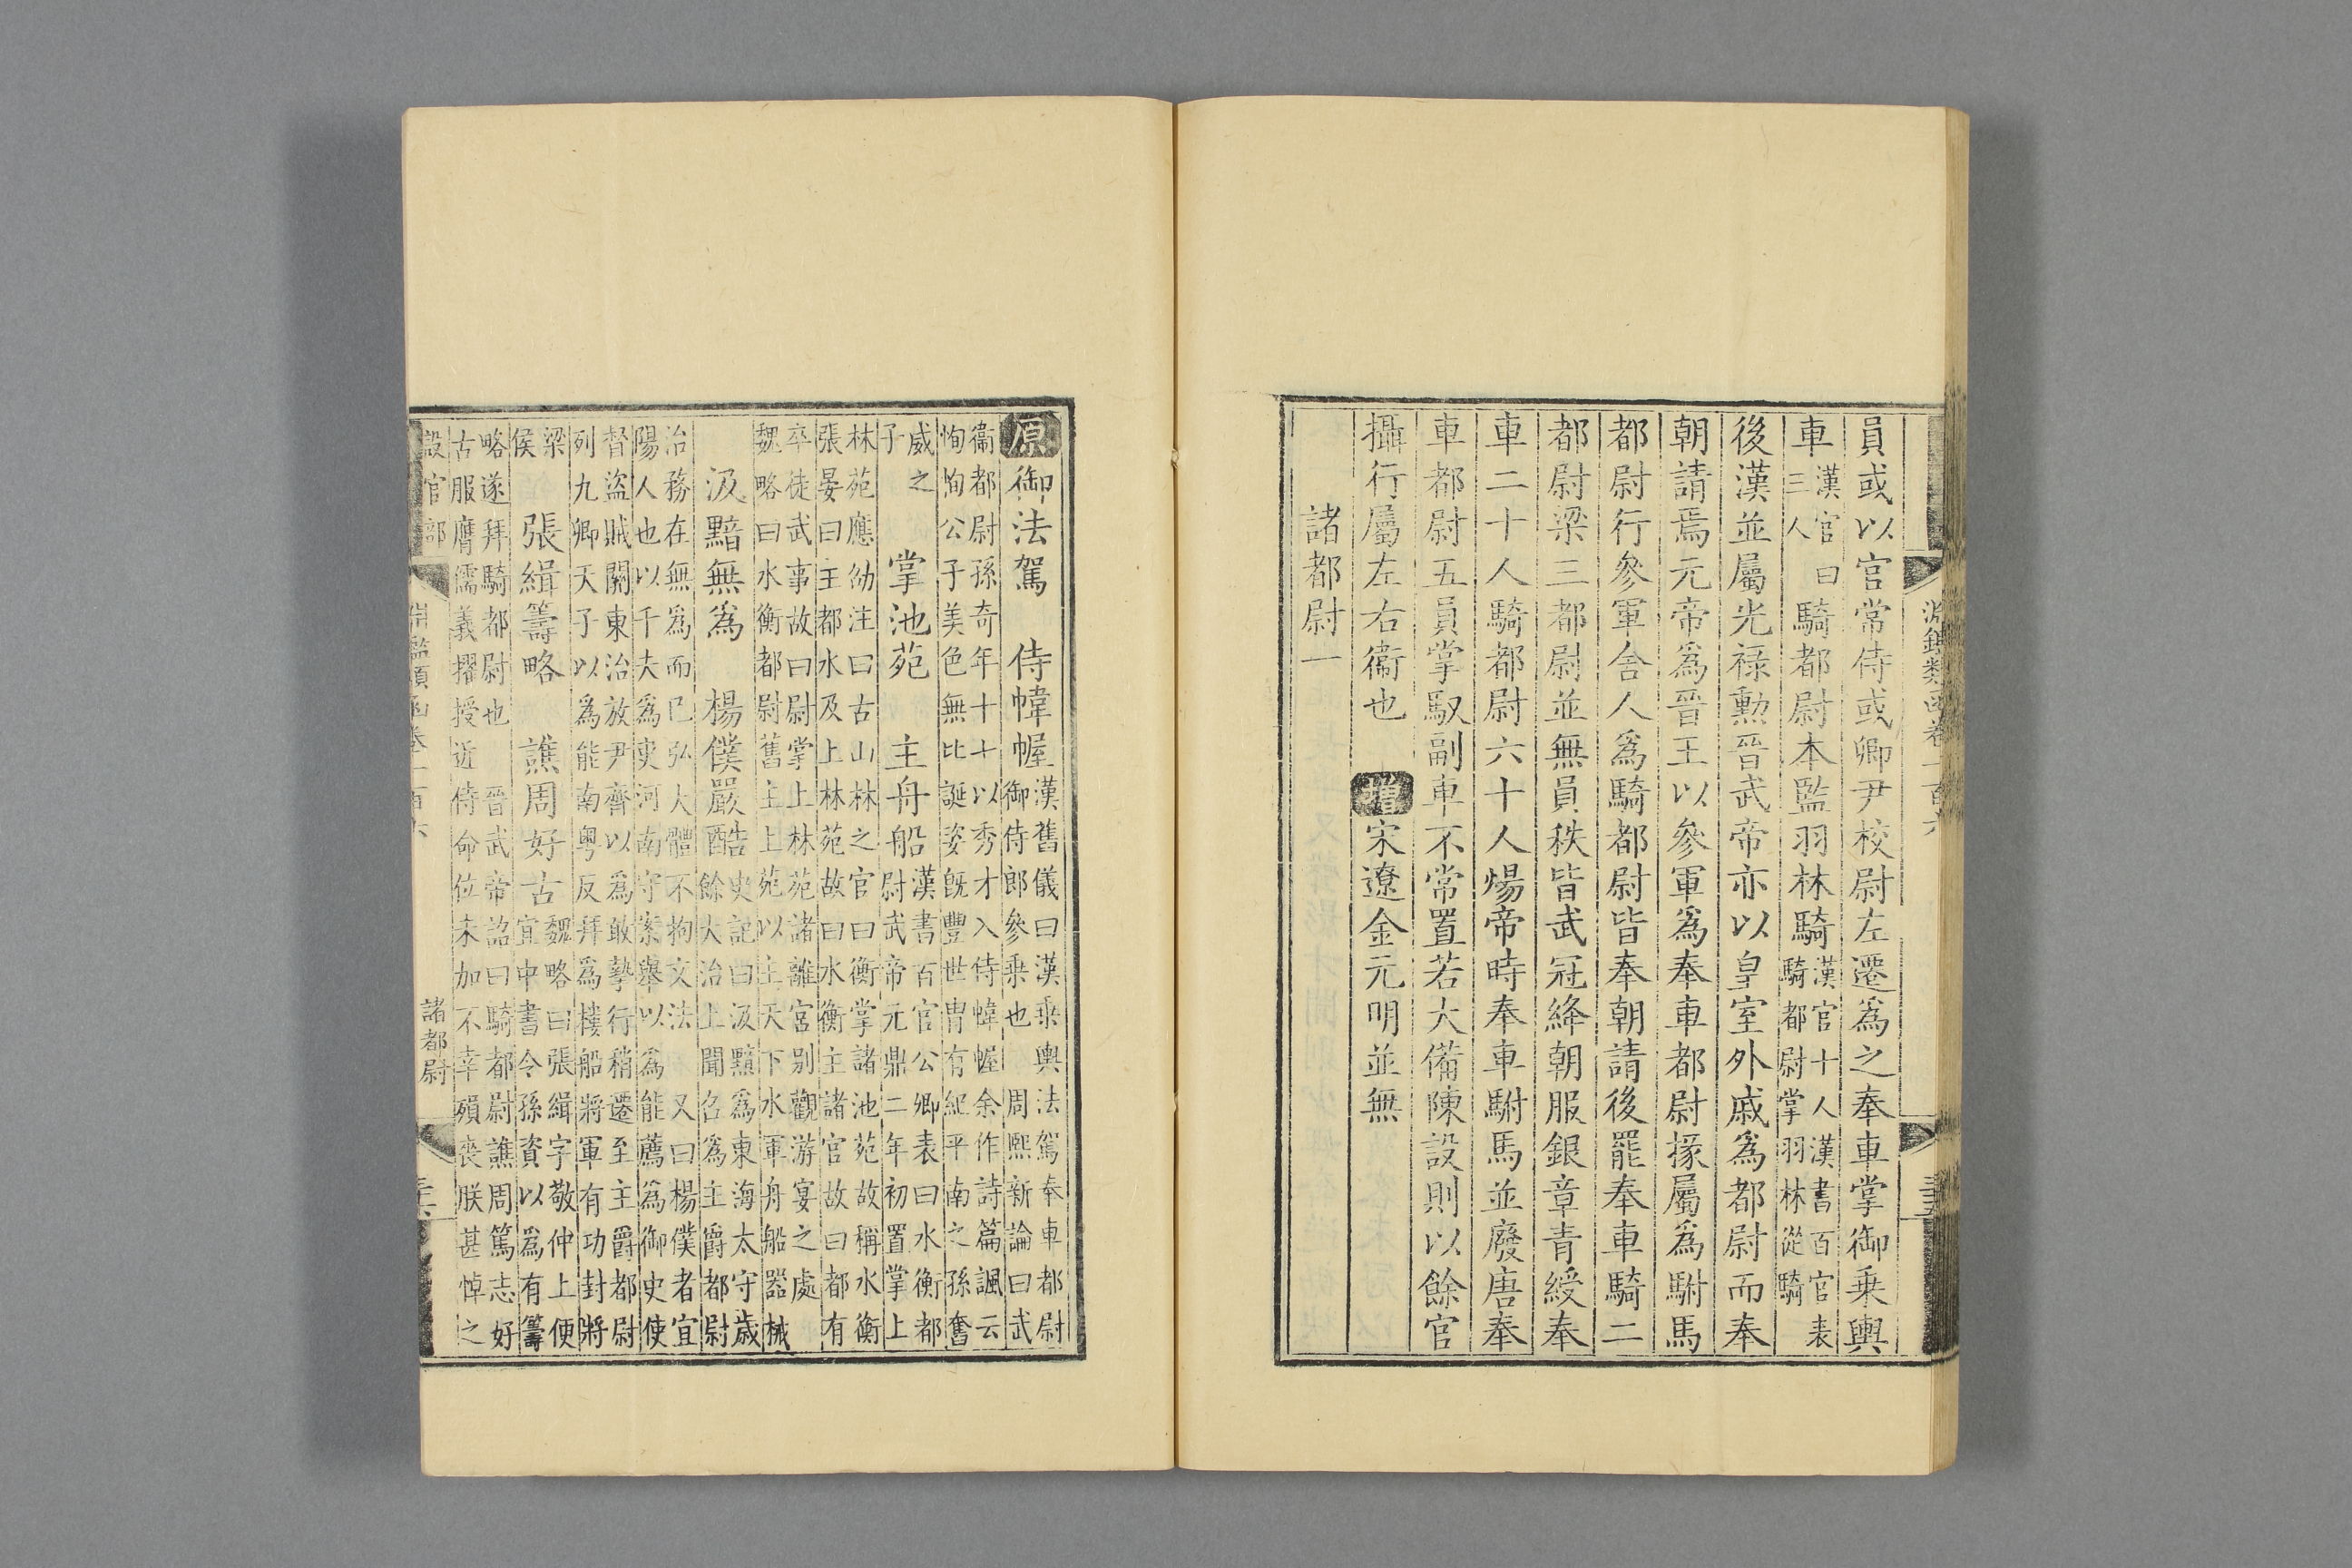 淵鑑類函卷一百六
員或以官常侍或卿尹校尉左遷爲之奉車掌御乗輿
車漢官曰三人騎都尉本監羽林騎漢官十人漢書百官表騎都尉掌羽林從騎
後漢並屬光禄勲晉武帝亦以皇室外戚爲都尉而奉
朝請焉元帝爲晉王以參軍爲奉車都尉掾屬爲駙馬
都尉行參軍舎人爲騎都尉皆奉朝請後罷奉車騎二
都尉梁三都尉並無員秩皆武冠絳朝服銀章青綬奉
車二十人騎都尉六十人煬帝時奉車駙馬並廢唐奉
車都尉五員掌馭副車不常置若大備陳設則以餘官
攝行屬左右衞也 增宋遼金元明並無
諸都尉一
原御法駕 侍幃幄漢舊儀曰漢乗輿法駕奉車都尉御侍郎參乗也 周熙新論曰武
衞都尉孫奇年十七以秀才入侍幃幄余作詩篇諷云恂恂公子美色無比誕姿既豐世胄有紀平南之孫奮
威之子 掌池苑 主舟船漢書百官公卿表曰水衡都尉武帝元鼎二年初置掌上
林苑應劭注曰古山林之官曰衡掌諸池苑故稱水衡張晏曰主都水及上林苑故曰水衡主諸官故曰都有
卒徒武事故曰尉掌上林苑諸離宮别觀游宴之處魏略曰水衡都尉舊主上苑以主天下水軍舟船器械
汲黯無爲 楊僕嚴酷史記曰汲黯爲東海太守歲餘大治上聞名爲主爵都尉
治務在無爲而已弘大體不拘文法 又曰楊僕者宜陽人也以千夫爲吏河南守案舉以爲能薦爲御史使
督盜賊關東治放尹齊以爲敢摯行稍遷至主爵都尉列九卿天子以爲能南粤反拜爲樓船將軍有功封將
梁侯 張緝籌略 譙周好古魏略曰張緝字敬仲上便宜中書令孫資以爲有籌
略遂拜騎都尉也 晉武帝詔曰騎都尉譙周篤志好古服膺儒義擢授近侍命位未加不幸殞喪朕甚悼之
設官部 淵鑑類函卷一百六 諸都尉